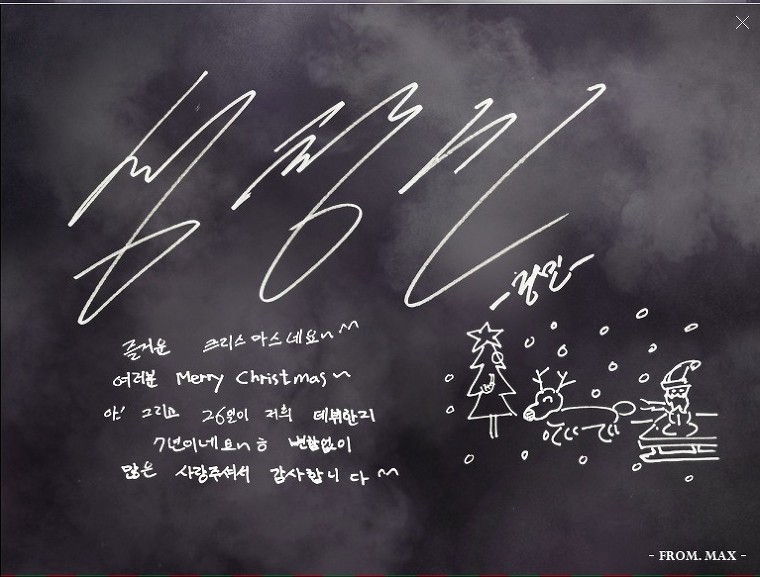 최강창민
-창민-
즐거운 크리스마스네요~^^
여러분 Merry Christmas~
아! 그리고 26일이 저희 데뷔한지
7년이네요~ㅎ 변함없이
많은 사랑주셔서 감사합니다^^
- FROM. MAX -